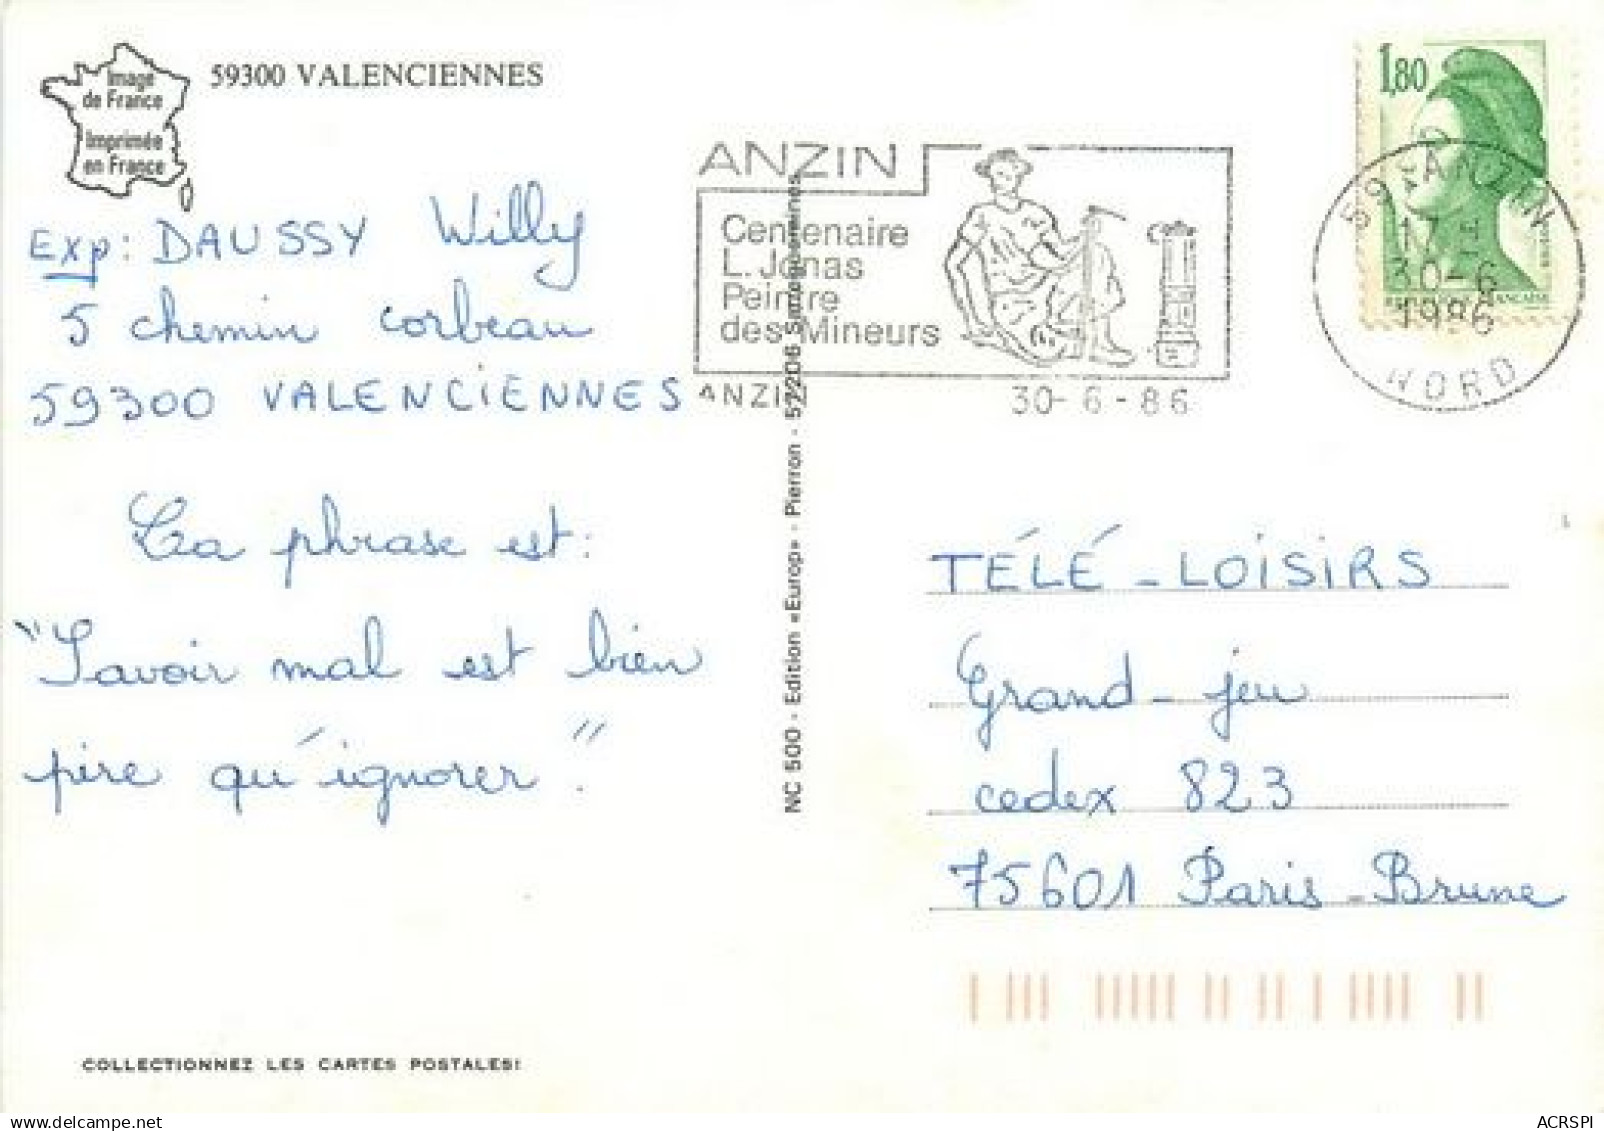 Image
de France
Imprimée
en France
59300 VALENCIENNES
Exp: DAUSSY Willy
5 chemin corbeau
59300 VALENCIENNES
La phrase est:
"Savoir mal est bien
pire qu'ignorer."
COLLECTIONNEZ LES CARTES POSTALES!
NC 500 - Edition «Europ» - Pierron - 57206 Sarreguemines
ANZIN
Centenaire
L. Jonas
Peintre
des Mineurs
ANZIN 30-6-86
1,80
59 ANZIN
17 H
30-6
1986
NORD
TÉLÉ-LOISIRS
Grand-jeu
cedex 823
75601 Paris-Brune
ACRSPI